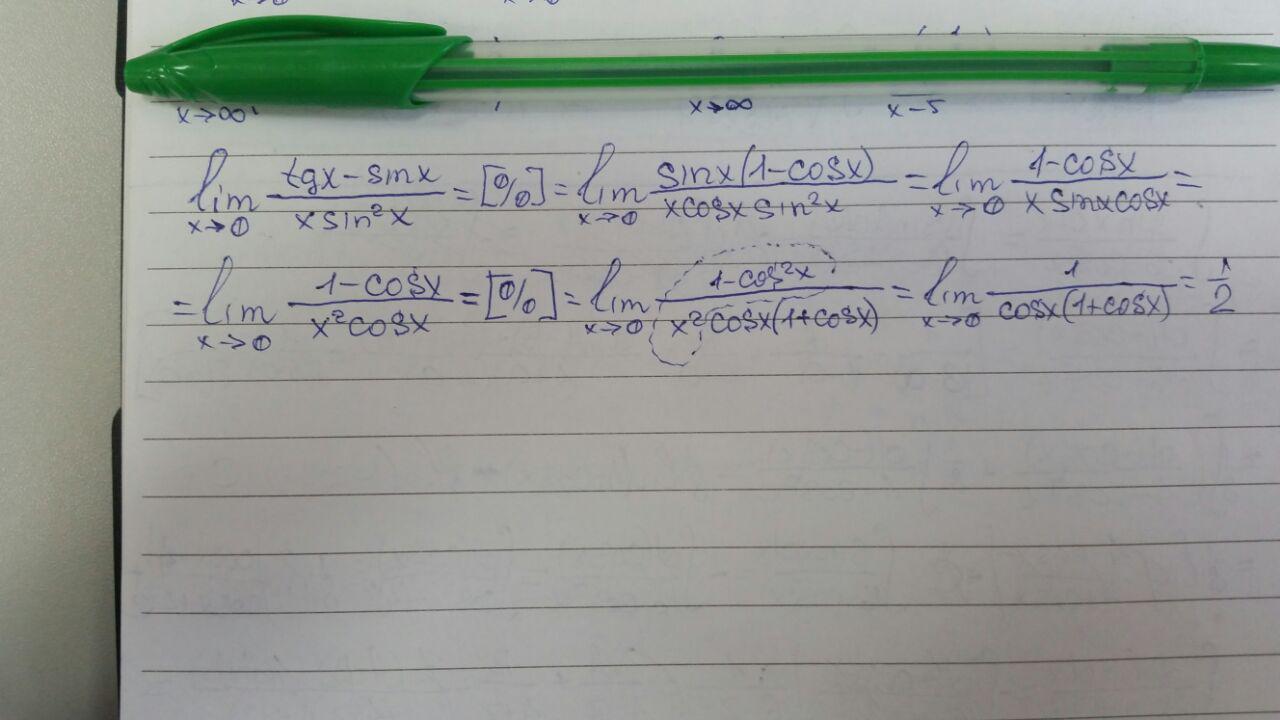 x→0 x→0
x→∞ x→∞ x→5
lim x→0 (tgx - sinx)/(x sin²x) = [0/0] = lim x→0 (sinx(1-cosx))/(xcosx sin²x) = lim x→0 (1-cosx)/(x sinx cosx) =
= lim x→0 (1-cosx)/(x²cosx) = [0/0] = lim x→0 (1-cos²x)/(x²cosx(1+cosx)) = lim x→0 1/(cosx(1+cosx)) = 1/2